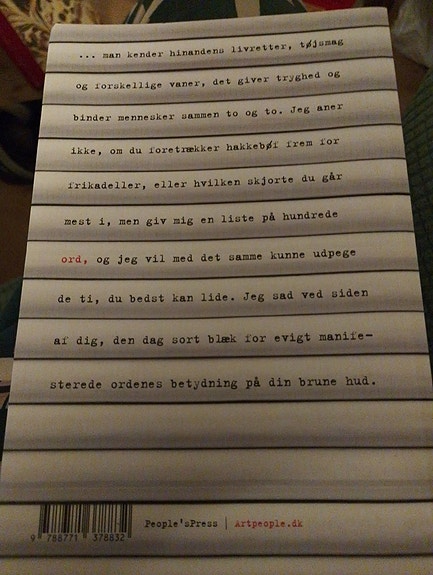 ... man kender hinandens livretter, tøjsmag
og forskellige vaner, det giver tryghed og
binder mennesker sammen to og to. Jeg aner
ikke, om du foretrækker hakkebøf frem for
frikadeller, eller hvilken skjorte du går
mest i, men giv mig en liste på hundrede
ord, og jeg vil med det samme kunne udpege
de ti, du bedst kan lide. Jeg sad ved siden
af dig, den dag sort blæk for evigt manife-
sterede ordenes betydning på din brune hud.
People'sPress | Artpeople.dk
9 788771 378832